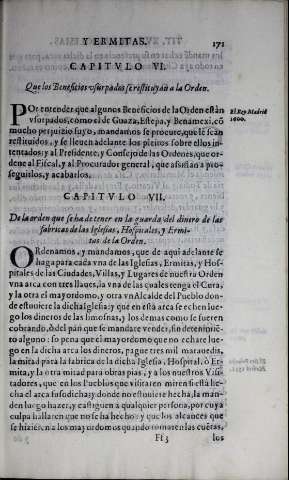 Y ERMITAS. 171
CAPITVLO VI.
Que los Beneficios vsurpados se restituyan a la Orden.
POr entender que algunos Beneficios de la Orden estàn
vsurpados, como el de Guaza, Estepa, y Benamexi, cõ
mucho perjuizio suyo, mandamos se procure, que le seàn
restituidos, y se lleuen adelante los pleitos sobre ellos in-
tentados; y al Presidente, y Consejo de las Ordenes, que or-
dene al Fiscal, y al Procurador general, que assistan a pro-
seguirlos, y acabarlos.
El Rey Madrid
1600.
CAPITVLO VII.
De la orden que se ha de tener en la guarda del dinero de las
fabricas de las Iglesias, Hospitales, y Ermi-
tas de la Orden.
ORdenamos, y mandamos, que de aqui adelante se
haga para cada vna de las Iglesias, Ermitas, y Hos-
pitales de las Ciudades, Villas, y Lugares de nuestra Orden
vna arca con tres llaues, la vna de las quales tenga el Cura,
y la otra el mayordomo, y otra vn Alcalde del Pueblo don-
de estuuiere la dicha Iglesia: y que en està arca se echen lue-
go los dineros de las limosnas, y los demas como se fueren
cobrando, ò del pan que se mandare vender, sin detenimiẽ-
to alguno: so pena que el mayordomo que no echare lue-
go en la dicha arca los dineros, pague tres mil marauedis,
la mitad para la fabrica de la dicha Iglesia, Hospital, ò Er-
mita, y la otra mitad para obras pias, y a los nuestros Visi-
tadores, que en los Pueblos que visitaren miren si està he-
cha el arca susodicha; y donde no estuuiere hecha, la man-
den luego hazer, y castiguen a qualquier persona, por cuya
culpa hallaren que no se ha hecho: y que los alcances que
se hizierẽ a los mayordomos quando tomaren las cuẽtas,
Ff 3 los